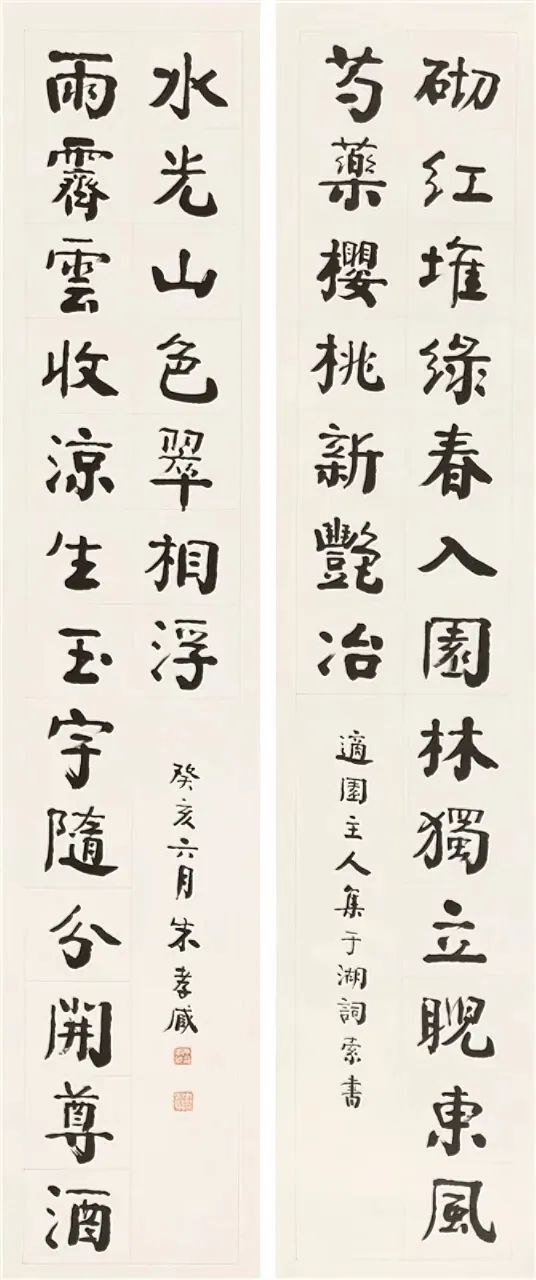 砌紅堆綠春入園林獨立睨東風
芍藥櫻桃新艷冶
適園主人集于湖詞索書
雨霽雲收涼生玉宇隨分開尊酒
水光山色翠相浮
癸亥六月朱孝臧